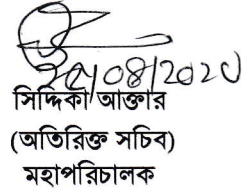 /08/2020
সিদ্দিকা আক্তার
(অতিরিক্ত সচিব)
মহাপরিচালক